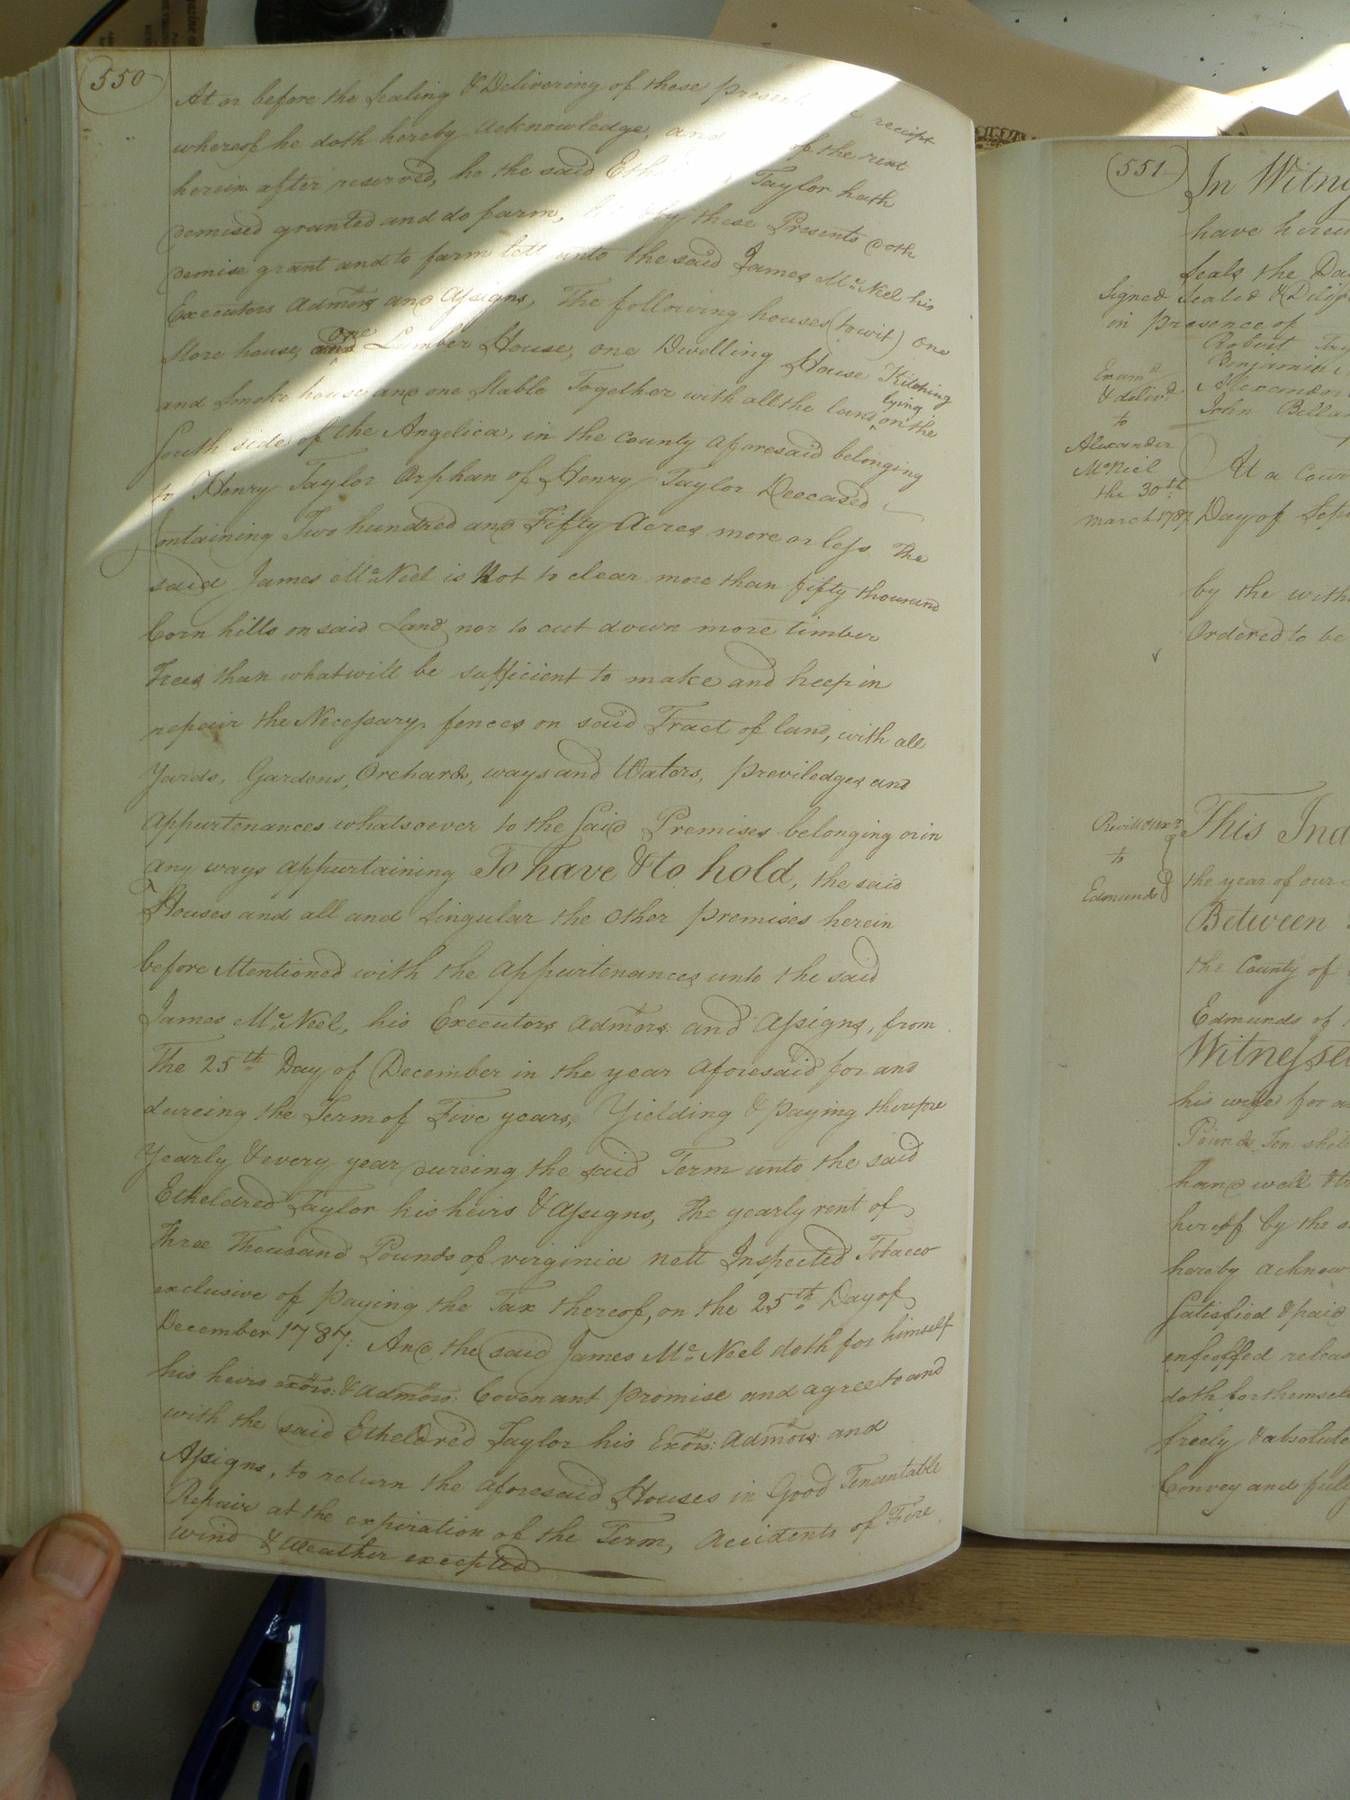 550
At or before the Sealing & Delivering of these present receipt
whereof he doth hereby acknowledge, and of the rent
herein after reserved, he the said Eth Taylor hath
demised granted and do farm, by these Presents doth
demise grant and to farm lett unto the said James Mc Neel his
Executors Admors and Assigns, The following houses (to wit) one
Store house, one Lumber House, one Dwelling House Kitching
and Smoke house and one Stable Together with all the land lying on the
South side of the Angelica, in the County aforesaid belonging
to Henry Taylor Orphan of Henry Taylor Deceased
Containing Two hundred and Fifty Acres more or less The
said James Mc Neel is Not to clear more than fifty thousand
Corn hills on said Land nor to cut down more timber
Trees than what will be sufficient to make and keep in
repair the Necessary fences on said Tract of land, with all
Yards, Gardens, Orchards, ways and Waters, previledges and
appurtenances whatsoever to the Said Premises belonging or in
any ways appurtaining To have & to hold, the said
Houses and all and singular the other premises herein
before Mentioned with the appurtenances unto the said
James Mc Neel, his Executors Admors and Assigns, from
The 25th Day of December in the year aforesaid for and
dureing the Term of Five years, Yielding & paying therefore
Yearly & every year dureing the said Term unto the said
Etheldred Taylor his heirs & Assigns, the yearly rent of
Three Thousand Pounds of virginia nett Inspected Tobacco
exclusive of paying the Tax thereof, on the 25th Day of
December 1787: And the said James Mc Neel doth for himself
his heirs exors: & Admors: Covenant promise and agree to and
with the said Etheldred Taylor his Exors: Admors and
Assigns, to return the aforesaid Houses in Good Tenantable
Repair at the expiration of the Term, Accidents of Fire
wind & Weather excepted
551
In Witne
have hereu
Seals the Da
Signed Sealed &
in presence of
Robert
Benjamin
Alexander
John Bella
Examd
& delivd
to
Alexander
McNiel
the 30th
march 1787
At a Cour
Day of Sep
by the with
Ordered to be
to
Edmunds
This Ind
the year of our
Between
the County of
Edmunds of
Witnesse
his wife for a
Pounds Ten shil
hand well &
hereof by the s
hereby acknow
Satisfied & paid
enfeoffed releas
doth for themsel
freely & absolute
Convey and full